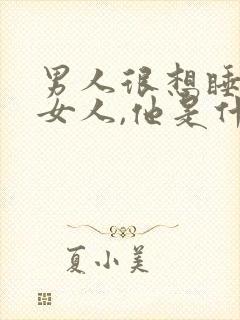 男人很想睡
女人,他是什
夏小美